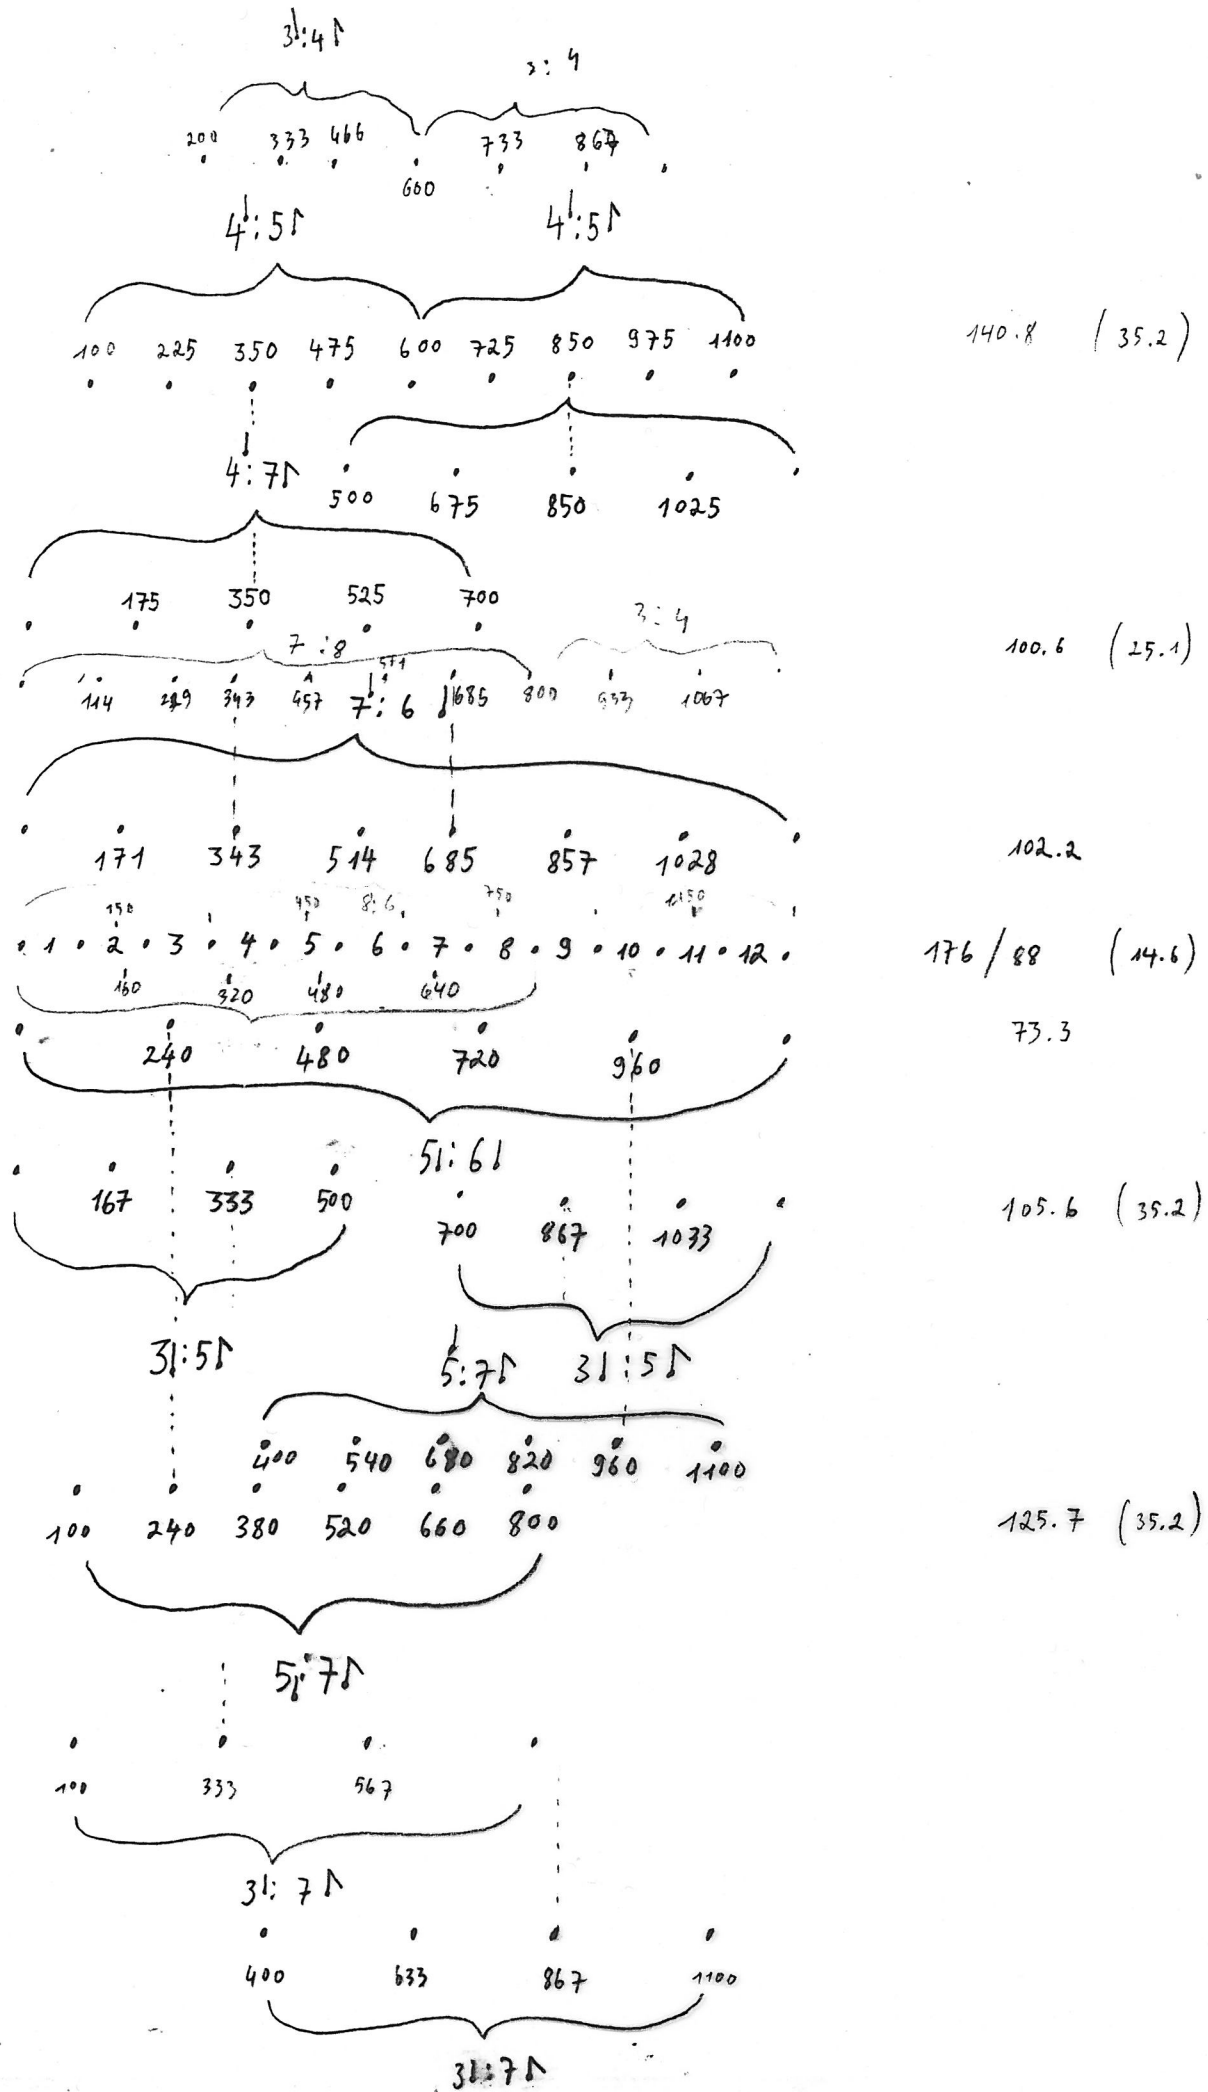 3♩:4♪
3:4
200 333 466 733 867
600
4♩:5♪ 4♩:5♪
100 225 350 475 600 725 850 975 1100 140.8 (35.2)
4♩:7♪
500 675 850 1025
175 350 525 700
3:4
7:8 100.6 (25.1)
571
114 229 343 457 685 800 933 1067
7♩:6♩
171 343 514 685 857 1028 102.2
150 450 8:6 750 1050
1 2 3 4 5 6 7 8 9 10 11 12 176/88 (14.6)
160 320 480 640
73.3
240 480 720 960
5♩:6♩
167 333 500 105.6 (35.2)
700 867 1033
3♩:5♪ 5♩:7♪ 3♩:5♪
400 540 680 820 960 1100
100 240 380 520 660 800 125.7 (35.2)
5♩:7♪
100 333 567
3♩:7♪
400 633 867 1100
3♩:7♪